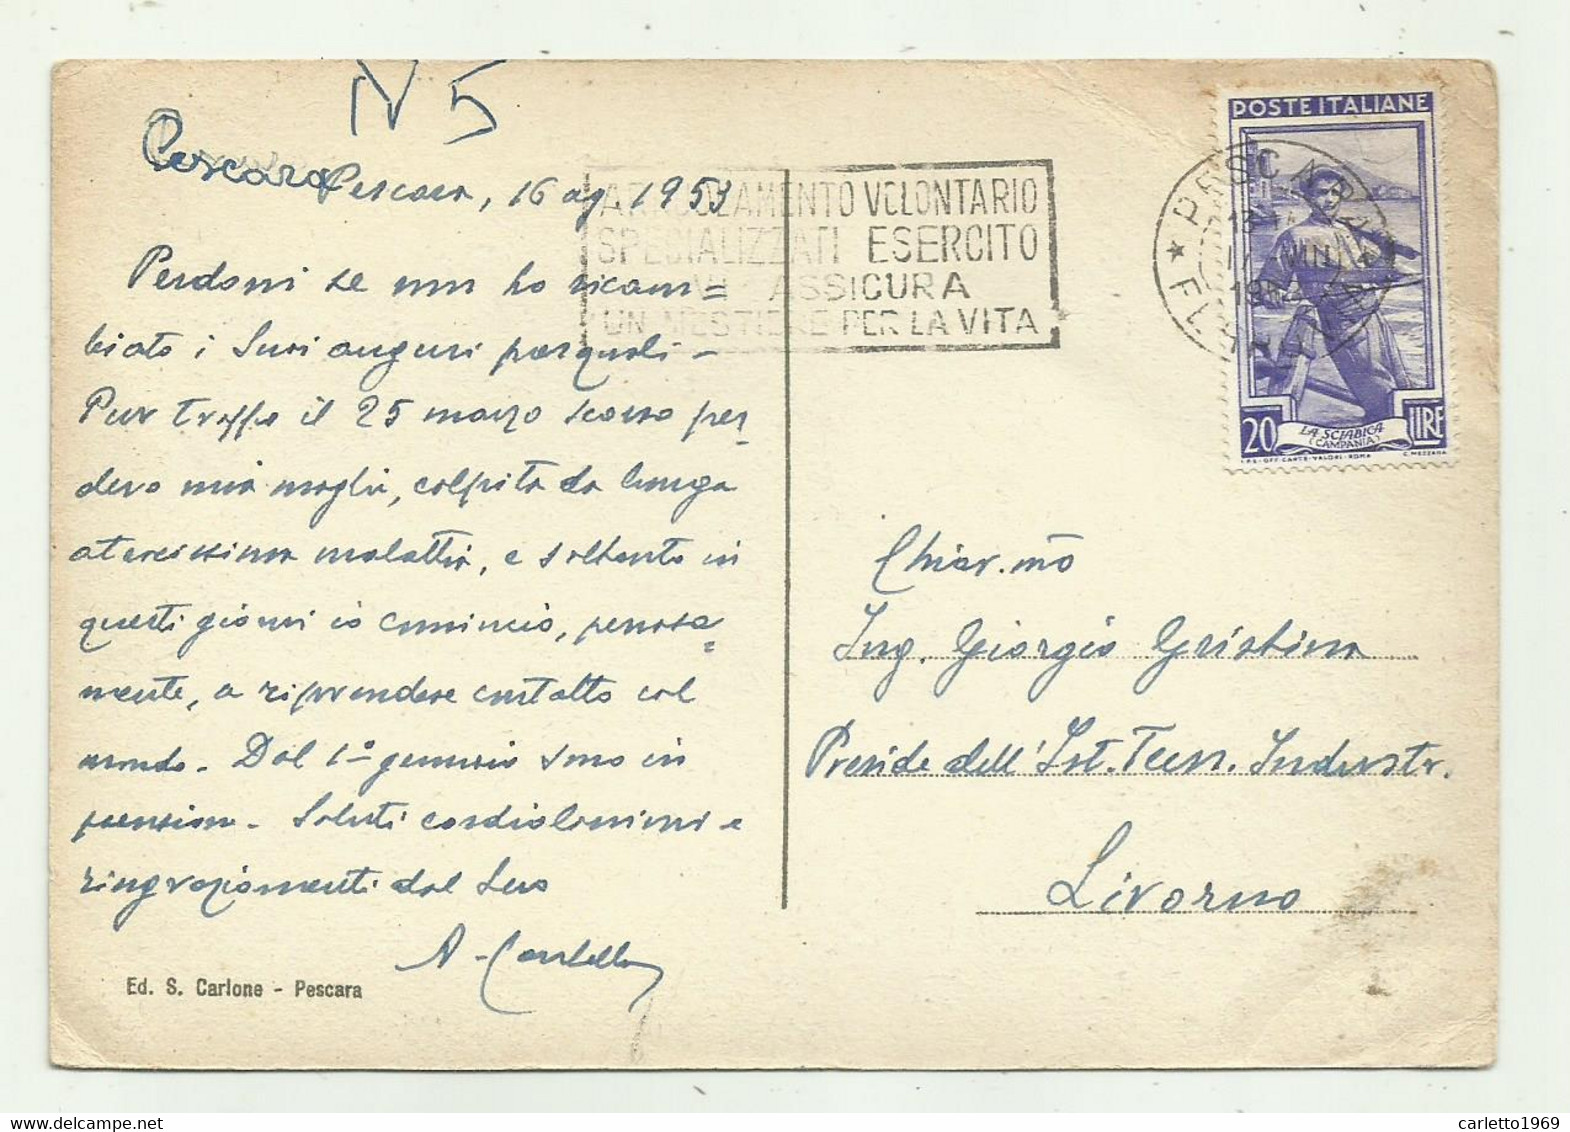 N 5
Pescara
Pescara, 16 ag. 1953
ARRUOLAMENTO VOLONTARIO
SPECIALIZZATI ESERCITO
VI ASSICURA
UN MESTIERE PER LA VITA
POSTE ITALIANE
20 LIRE
LA SCIABICA
(CAMPANIA)
I.P.S.-OFF.CARTE-VALORI-ROMA C. MEZZANA
Perdoni se non ho ricam=
biato i Suoi auguri pasquali -
Pur troppo il 25 marzo scorso per-
devo mia moglie, colpita da lunga
atrocissima malattia, e soltanto in
questi giorni io comincio, penosa=
mente, a riprendere contatto col
mondo. Dal 1° gennaio sono in
pensione. Saluti cordialissimi e
ringraziamenti dal Suo
A.
Ed. S. Carlone - Pescara
Chiar.mo
Ing. Giorgio Gristina
Preside dell'Ist. Tecn. Industr.
Livorno
carletto1969